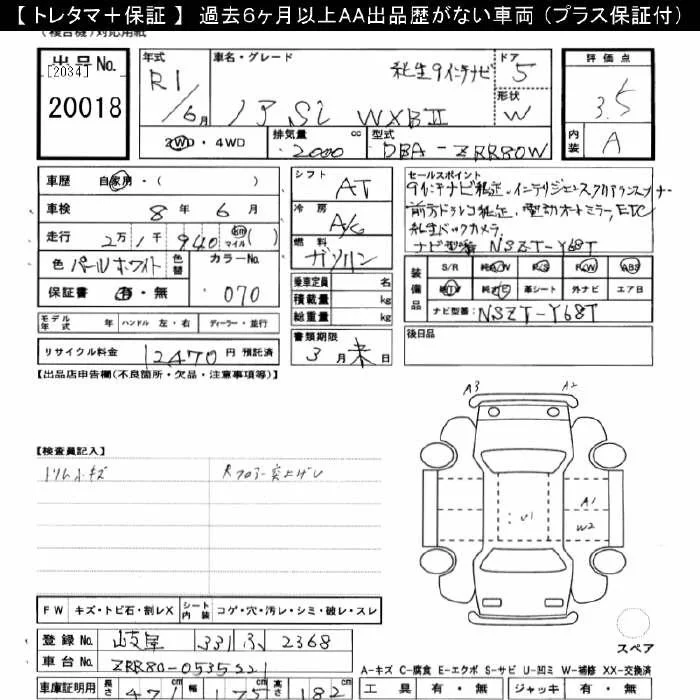 【トレタマ＋保証】 過去６ヶ月以上ＡＡ出品歴がない車両（プラス保証付）
(複合機)対応用紙
出品No.
[2034]
20018
年式 車名・グレード ドア 評価点
R1 社生9インチナビ 5
/6月 ノア Si WXBⅡ 形状 W 3.5
2WD・4WD 排気量 cc 型式 内装 A
2000 DBA-ZRR80W
車歴 自家用・( )
シフト AT
セールスポイント
車検 8年 6月
冷房 A/C
9インチナビ純正.インテリジェンスクリアランスソナー
前方ドラレコ純正.電動オートミラー,ETC
走行 2万 1千 940 km マイル ( )
燃料 ガソリン
純正バックカメラ.
ナビ型番 NSZT-Y68T
色 パールホワイト 色替 カラーNo.
保証書 有・無 070
乗車定員 名
積載量 kg
総重量 kg
装備品 S/R 純A/W P/S P/W ABS
純TV 純ナビ 革シート 外ナビ エアB
ナビ型番: NSZT-Y68T
モデル年式 年 ハンドル 左・右 ディーラー・並行
リサイクル料金 12470 円 預託済
書類期限 3月末日
後日品
【出品店申告欄(不良箇所・欠品・注意事項等)】
A3 A2
【検査員記入】
トリム小キズ Rフロアー突上ゲレ
A1
W2
FW キズ・トビ石・割レX シート内装 コゲ・穴・汚レ・シミ・破レ・スレ
登録No. 岐阜 331 ふ 2368
スペア
車台No. ZRR80-0535221
A-キズ C-腐食 E-エクボ S-サビ U-凹ミ W-補修 XX-交換済
車庫証明用 長さ 471 cm 幅 175 cm 高さ 182 cm
工具 有・無 ジャッキ 有・無